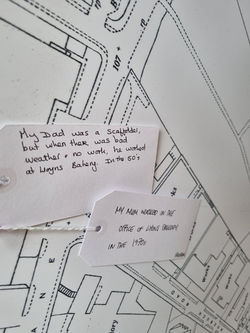 107
My Dad was a Scaffolder,
but when there was bad
weather + no work, he worked
at Lyons Bakery. In the 50's
MY MUM WORKED IN THE
OFFICE OF LYONS BAKERY
IN THE 1970s
Works
Works
L A N E
Factory